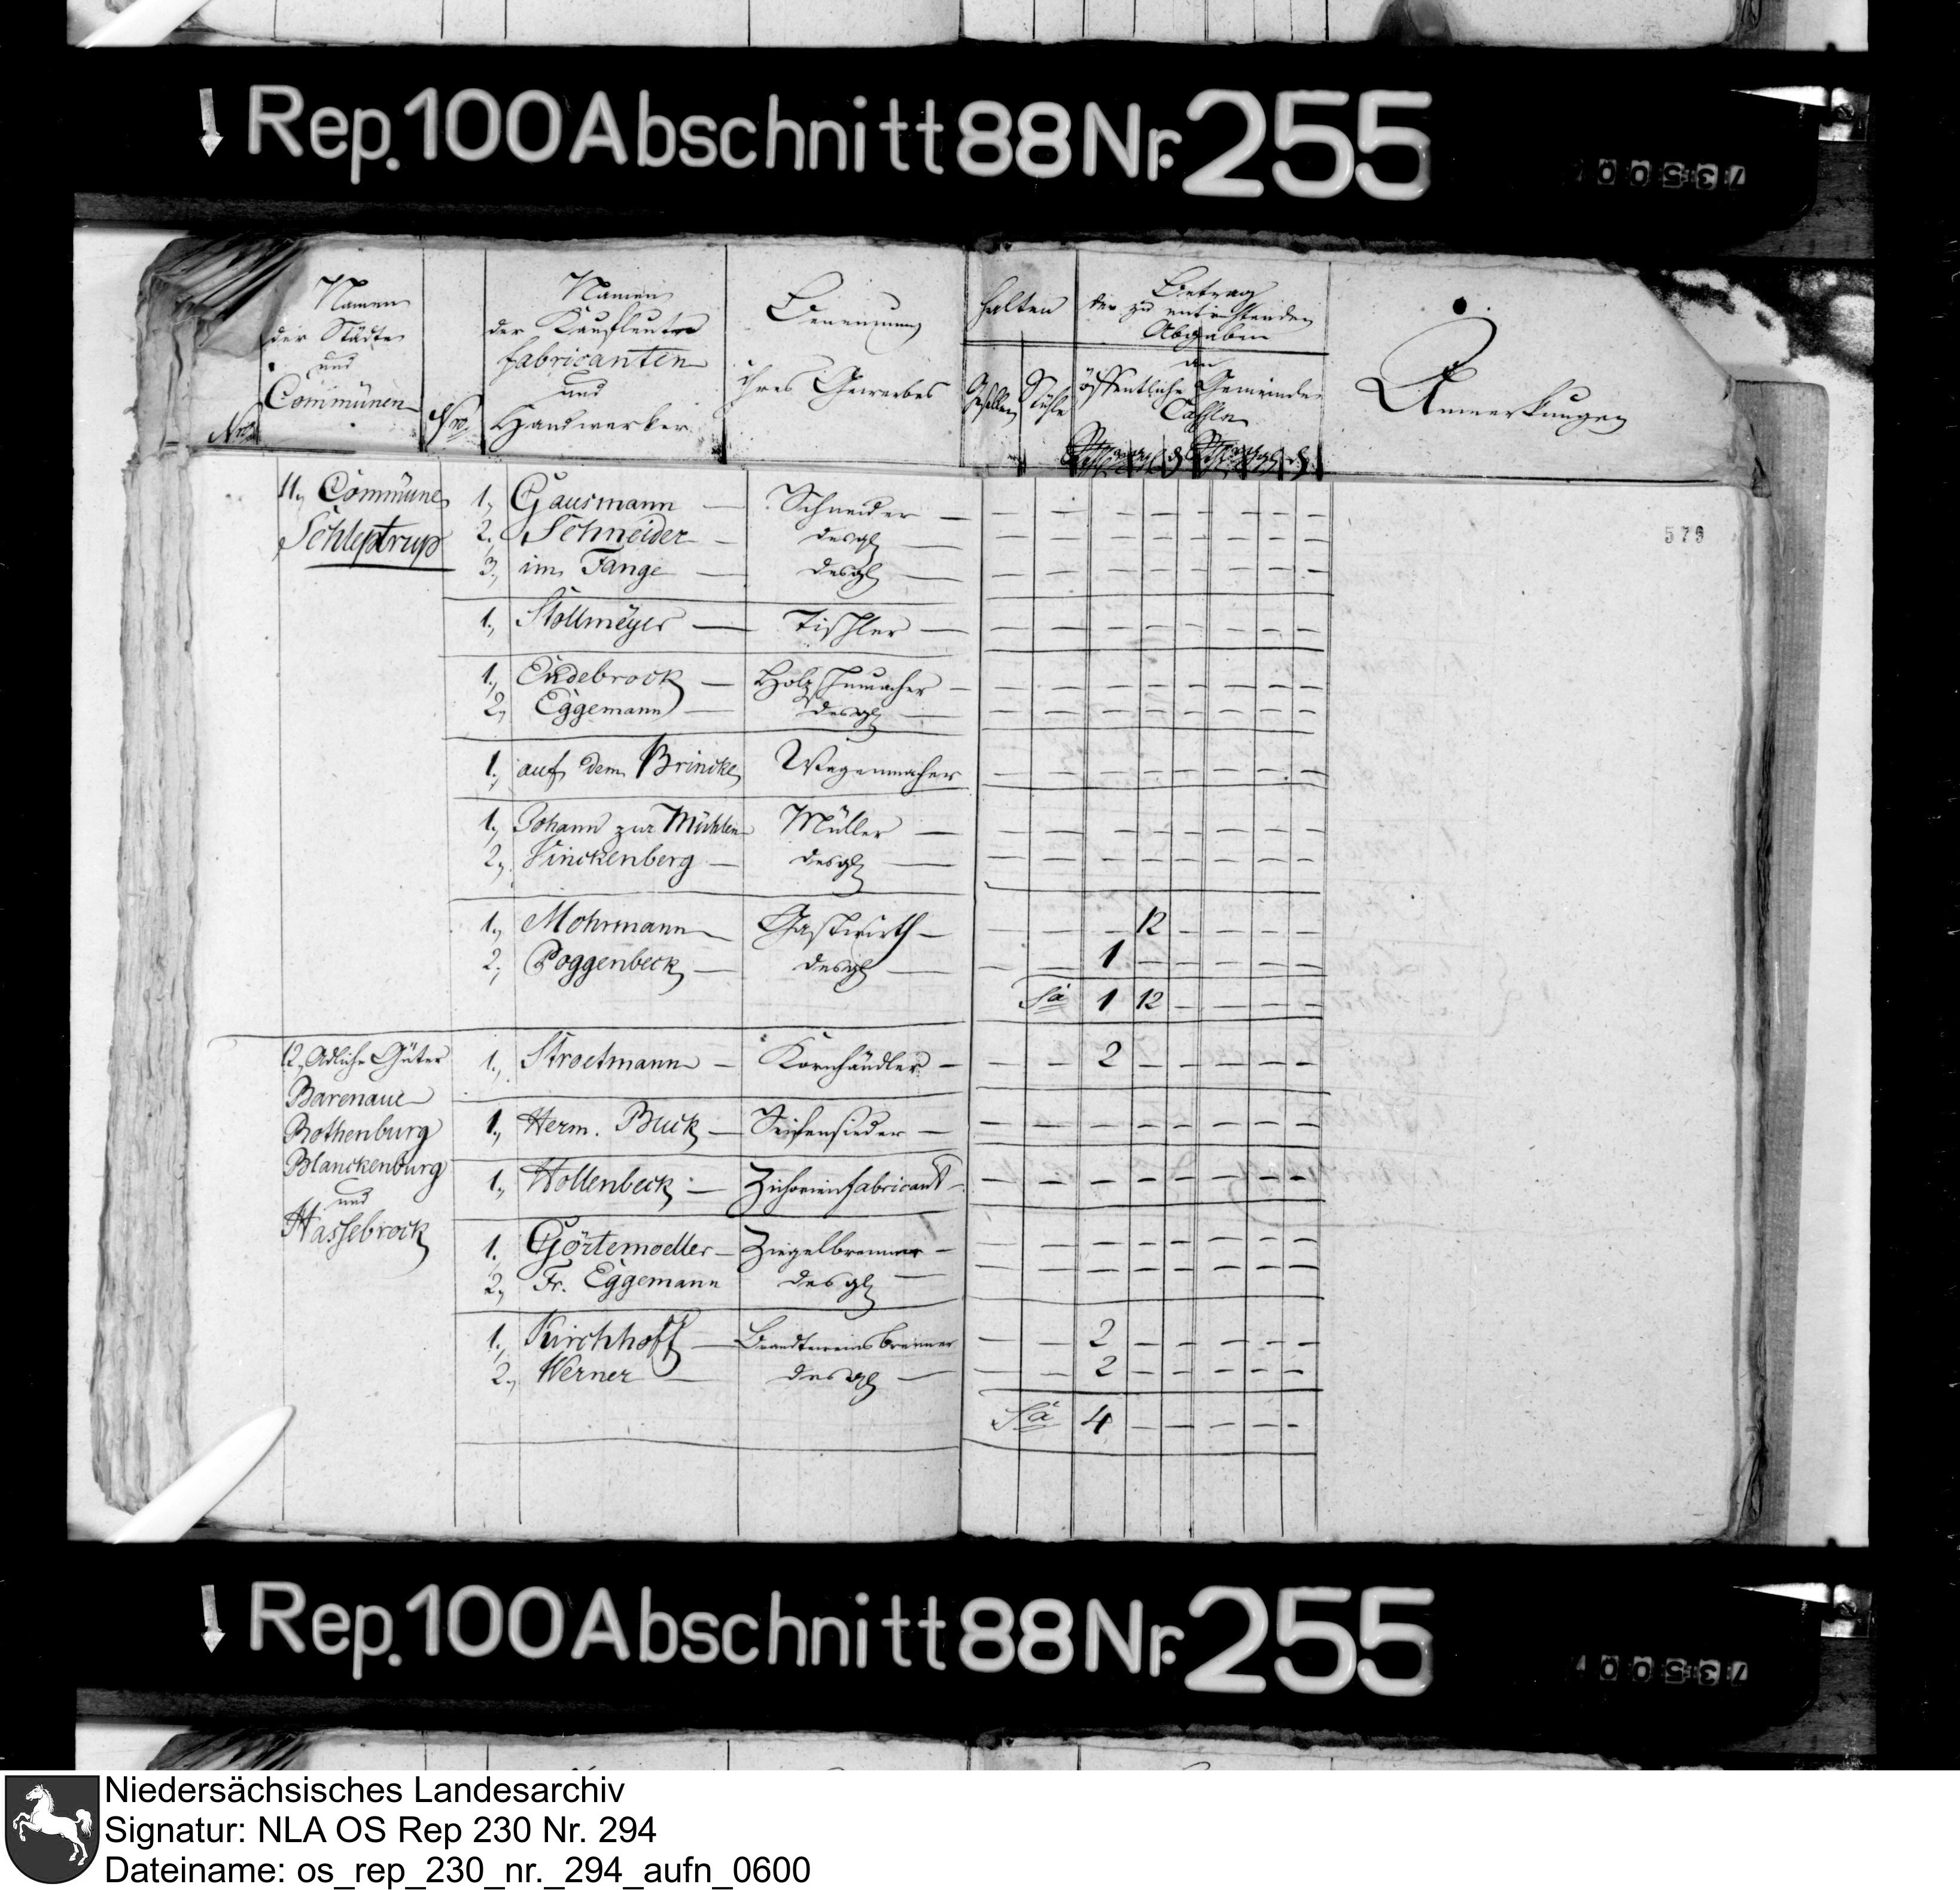 Rep. 100 Abschnitt 88 Nr. 255
73500
Nro
Namen
der Städte
und
Communen
Nro
Namen
der Kaufleute
fabricanten
und
Handwerker
Benennung
ihres Gewerbes
halten
Gesellen
Stühle
Betrag
der zu entrichtenden
Abgaben
an
öffentliche Gemeinde
Cassen
Anmerkungen
579
11, Commüne
Schleptrup
1, Gausmann — Schneider — — — — — — — — —
2, Schneider — desgl — — — — — — — — —
3, im Fange — desgl — — — — — — — — —
1, Stollmeyer — Tischler — — — — — — — — —
1, Endebrock — Holzschumacher — — — — — — — — —
2, Eggemann — desgl — — — — — — — — —
1, auf dem Brincke Wagenmacher — — — — — — — —
1, Johann zur Mühlen Müller — — — — — — — — —
2, Finckenberg — desgl — — — — — — — — —
1, Mohrmann — Gastwirth — — — — 12 — — — —
2, Poggenbeck — desgl — — — 1 — — — — —
Sa 1 12 — — — —
12, Adliche Güter
Barenaue
Rothenburg
Blanckenburg
und
Hassebrock
1, Stroetmann — Kornhändler — — — 2 — — — — —
1, Herm. Buck — Seifensieder — — — — — — — — —
1, Hollenbeck — Zichorienfabricant — — — — — — — — —
1. Görtemoeller — Ziegelbrenner — — — — — — — — —
2, Fr. Eggemann desgl — — — — — — — — —
1, Kirchhoff — Brandteweinsbrenner — — 2 — — — — —
2, Werner — desgl — — — 2 — — — — —
Sa 4 — — — — —
Rep. 100 Abschnitt 88 Nr. 255
73500
Niedersächsisches Landesarchiv
Signatur: NLA OS Rep 230 Nr. 294
Dateiname: os_rep_230_nr._294_aufn_0600